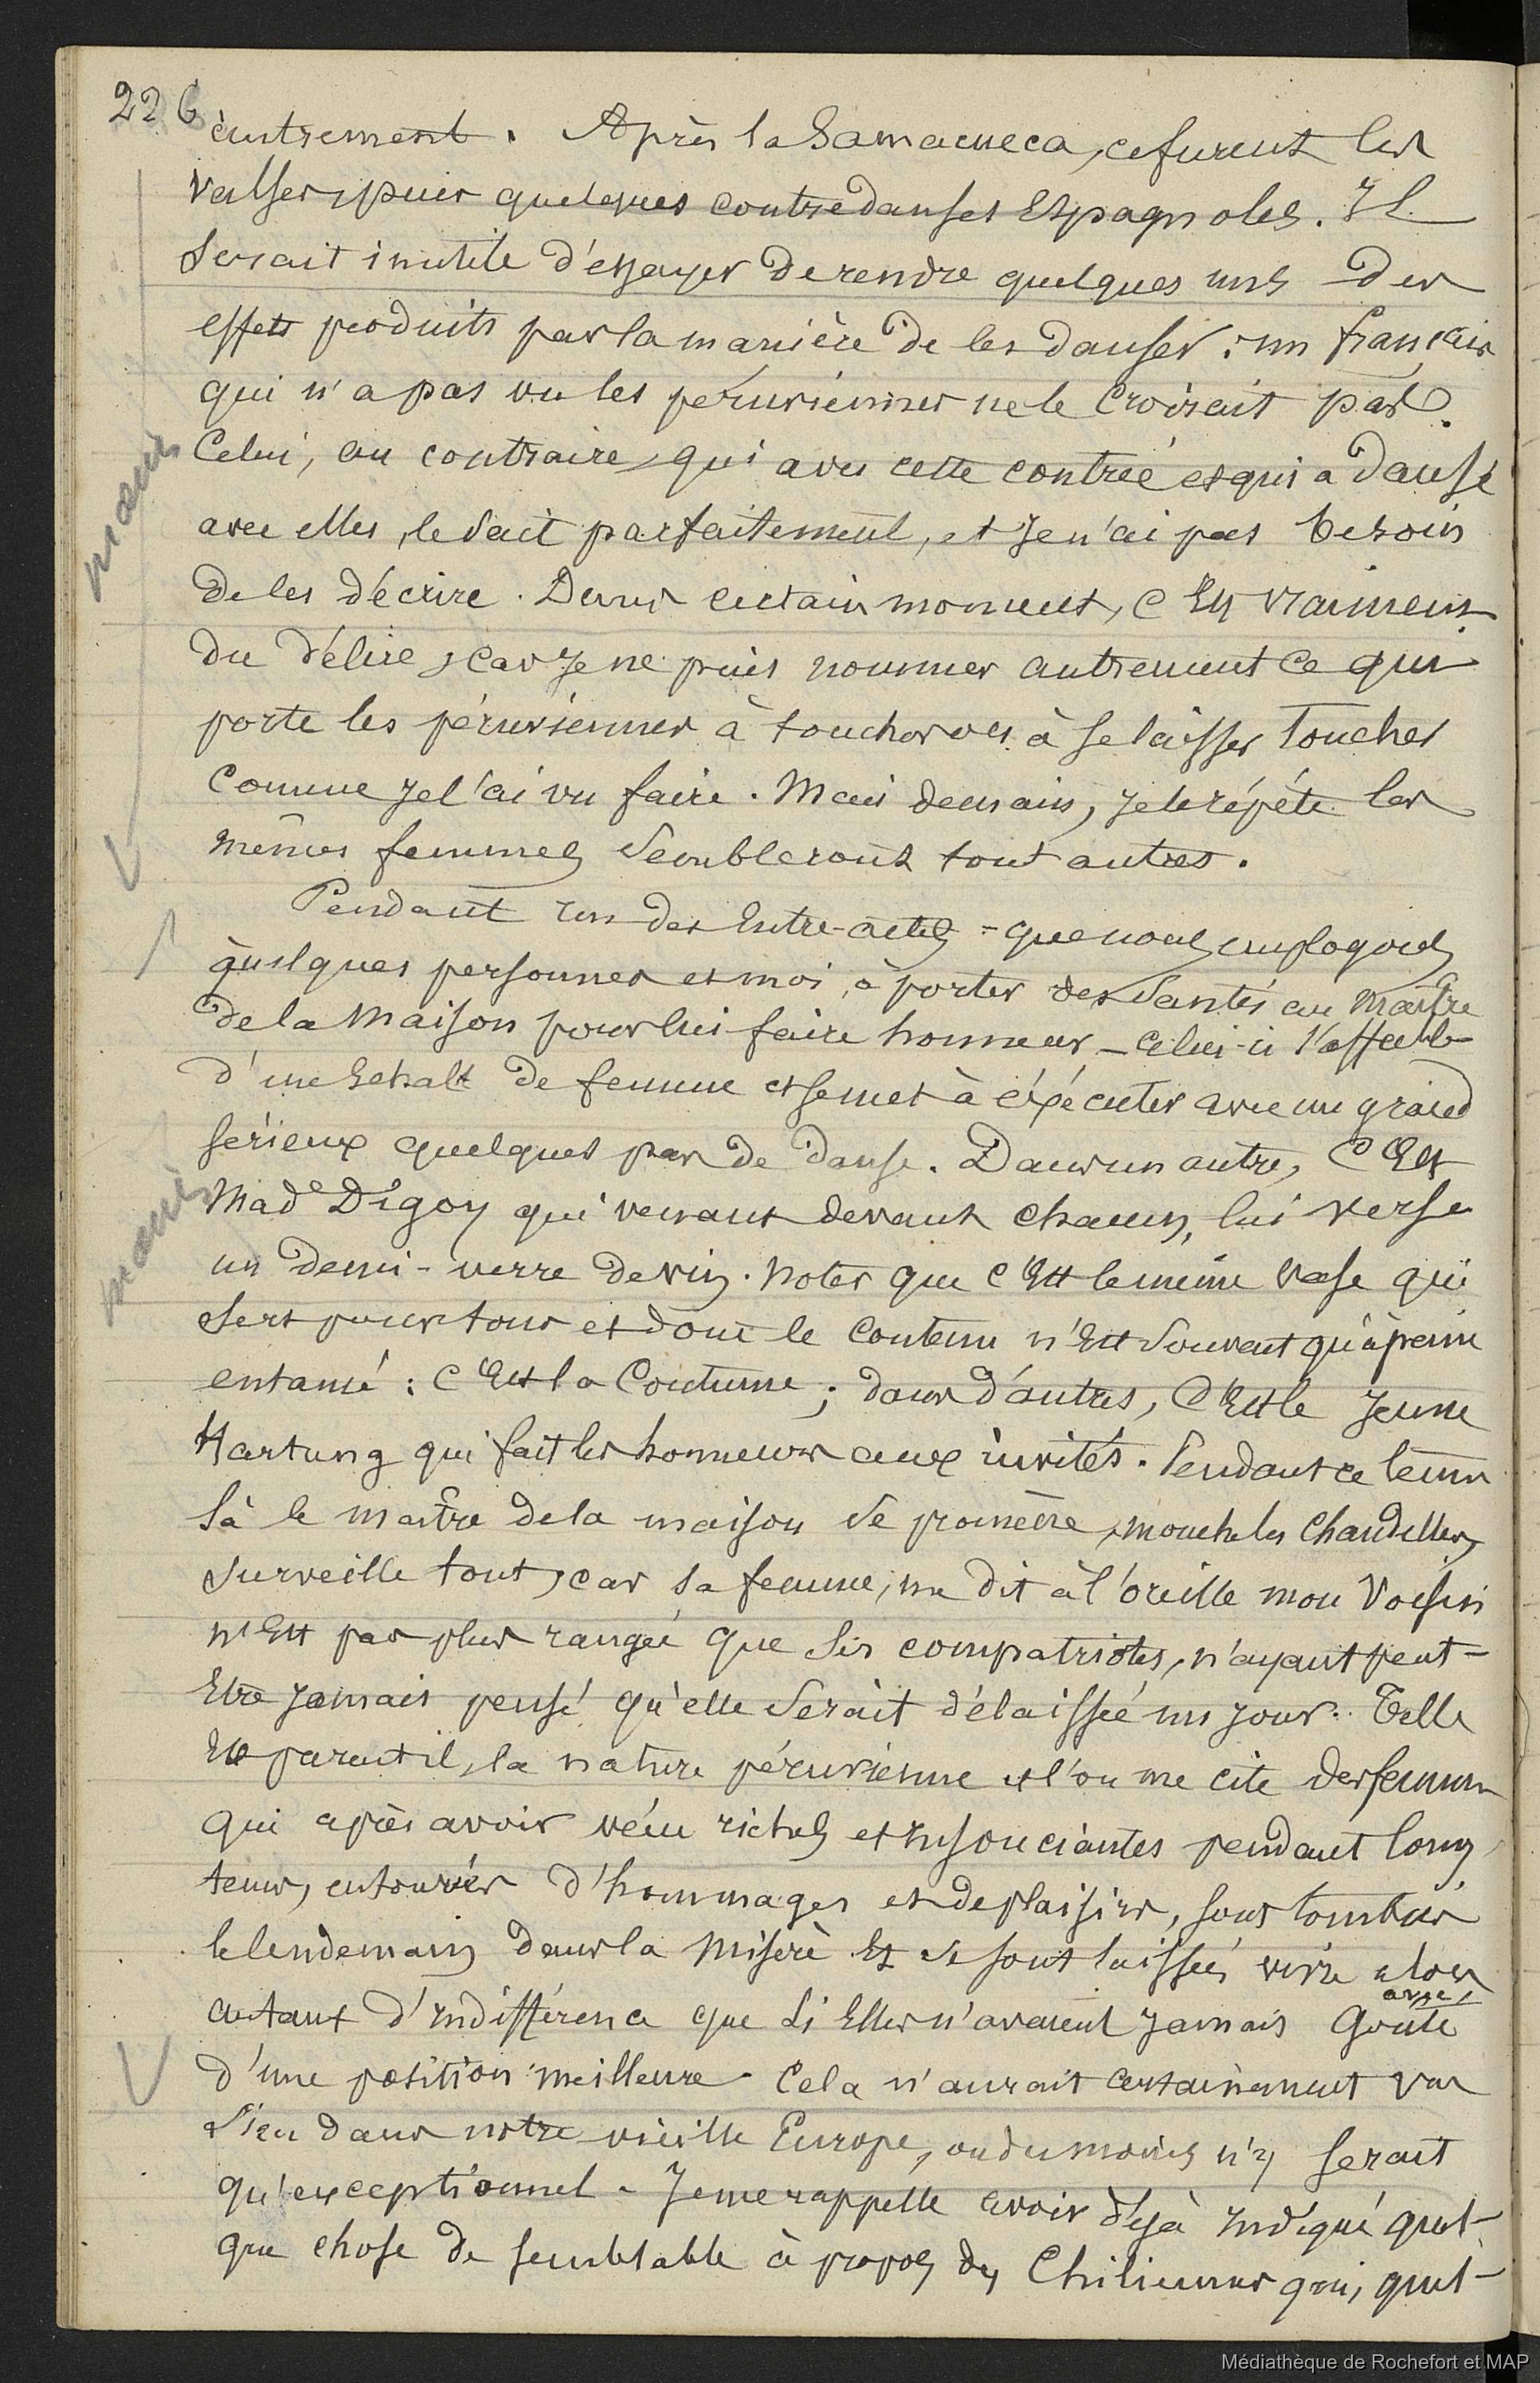 226
autrement. Après la Samacueca, ce furent les
valses, puis quelques contredanses Espagnoles. Il
serait inutile d'essayer de rendre quelques uns des
effets produits par la manière de les danser; un français
qui n'a pas vu les péruviennes ne le croirait pas.
Celui, au contraire, qui a vu cette contrée et qui a dansé
avec elles, le sait parfaitement, et je n'ai pas besoin
de les décrire. Dans certain moment, c'Est vraiment
du délire, car je ne puis nommer autrement ce qui
porte les péruviennes à toucher ou à se laisser toucher
comme je l'ai vu faire. Mais demain, je le répéte les
mêmes femmes sembleront tout autres.
Pendant un des Entre-actes - que nous employons
quelques personnes et moi, à porter des santés au maître
de la maison pour lui faire honneur - celui-ci s'affuble
d'un schalt de femme et se met à éxécuter avec un grand
sérieux quelques pas de danse. Dans un autre, C'Est
Made Digoy qui venant devant chacun, lui verse
un demi-verre de vin. Noter que c'Est le même vase qui
sert pour tous et dont le contenu n'Est souvent qu'à peine
entamé : C'Est la Coutume ; dans d'autres, C'Est le jeune
Hartung qui fait les honneurs aux invités. Pendant ce tems
là le maître de la maison se promène, mouche les chandelles,
surveille tout, car sa femme, me dit à l'oreille mon voisin
n'Est pas plus rangée que ses compatriotes, n'ayant peut-
Etre jamais pensé qu'elle serait délaissée un jour. Telle
Est parait-il, la nature péruvienne et l'on me cite des femmes
qui après avoir vécu riches et insouciantes pendant long
tems, entourées d'hommages et de plaisirs, sont tombées
le lendemain dans la misère Et se sont laissées vivre alors
avec
autant d'indifférence que si Elles n'avaient jamais gouté
d'une position meilleure. Cela n'aurait certainement pas
lieu dans notre vieille Europe, ou du moins n'y serait
qu'exceptionnel. Je me rappelle avoir déjà indiqué quel-
que chose de semblable à propos des Chiliennes qui, quel-
mœurs
mœurs
Médiathèque de Rochefort et MAP